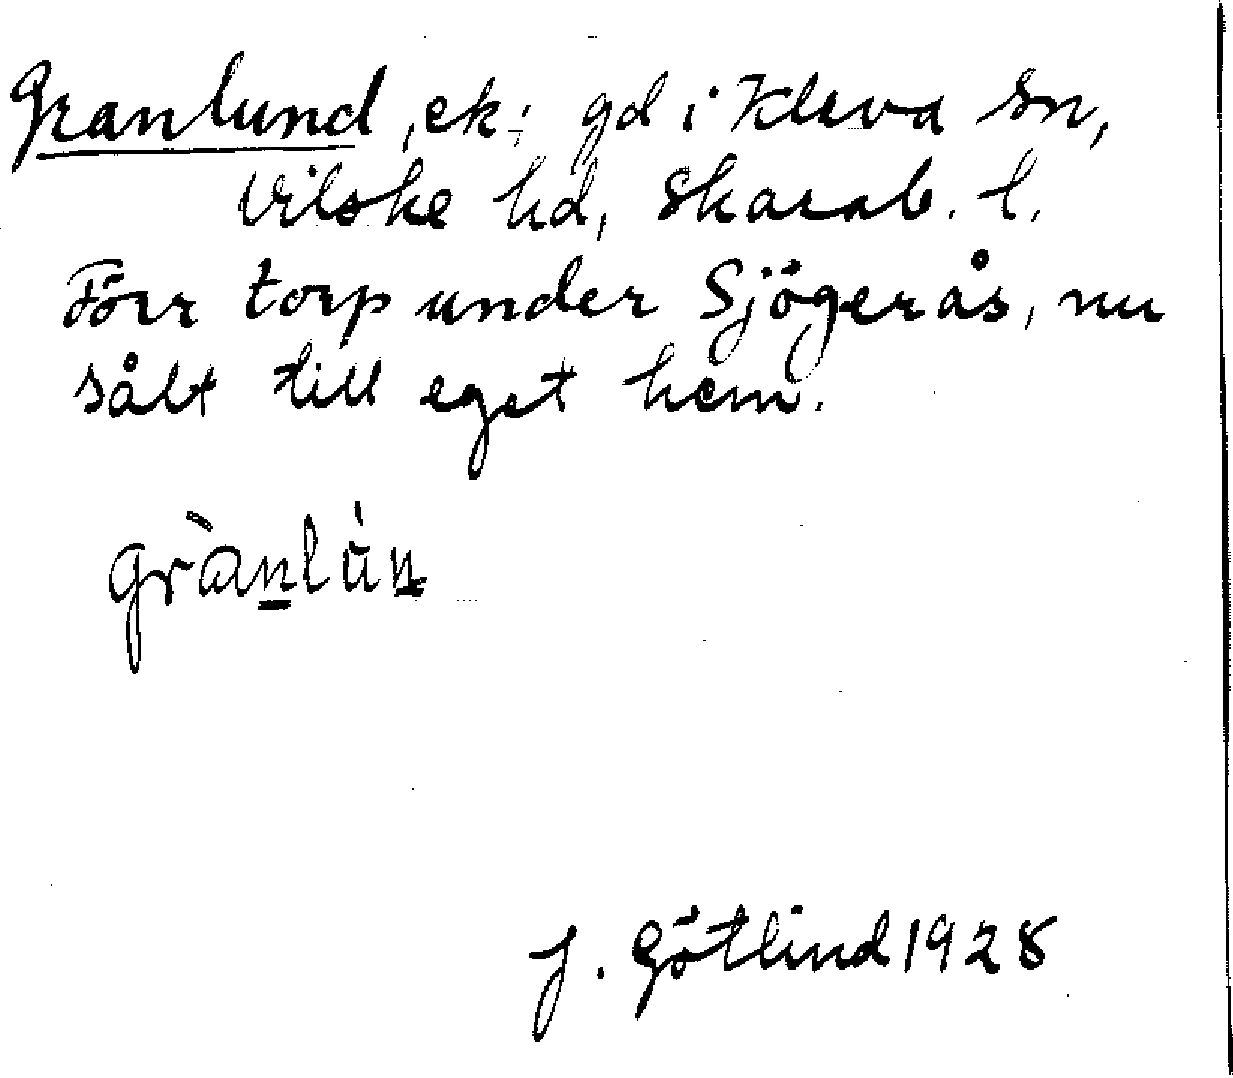 Granlund, ek. gd i Kleva sn,
Vilske hd, Skarab. l.
Förr torp under Sjögerås, nu
sålt till eget hem.
grànlùn
J. Götlind 1928